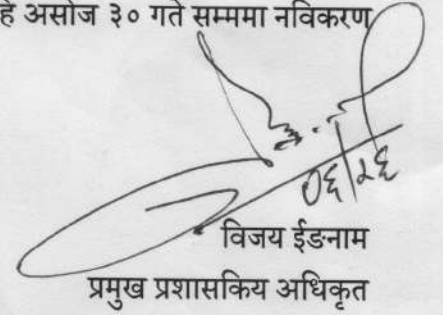 हे असोज ३० गते सम्ममा नविकरण
०६/२६
विजय ईङनाम
प्रमुख प्रशासकिय अधिकृत